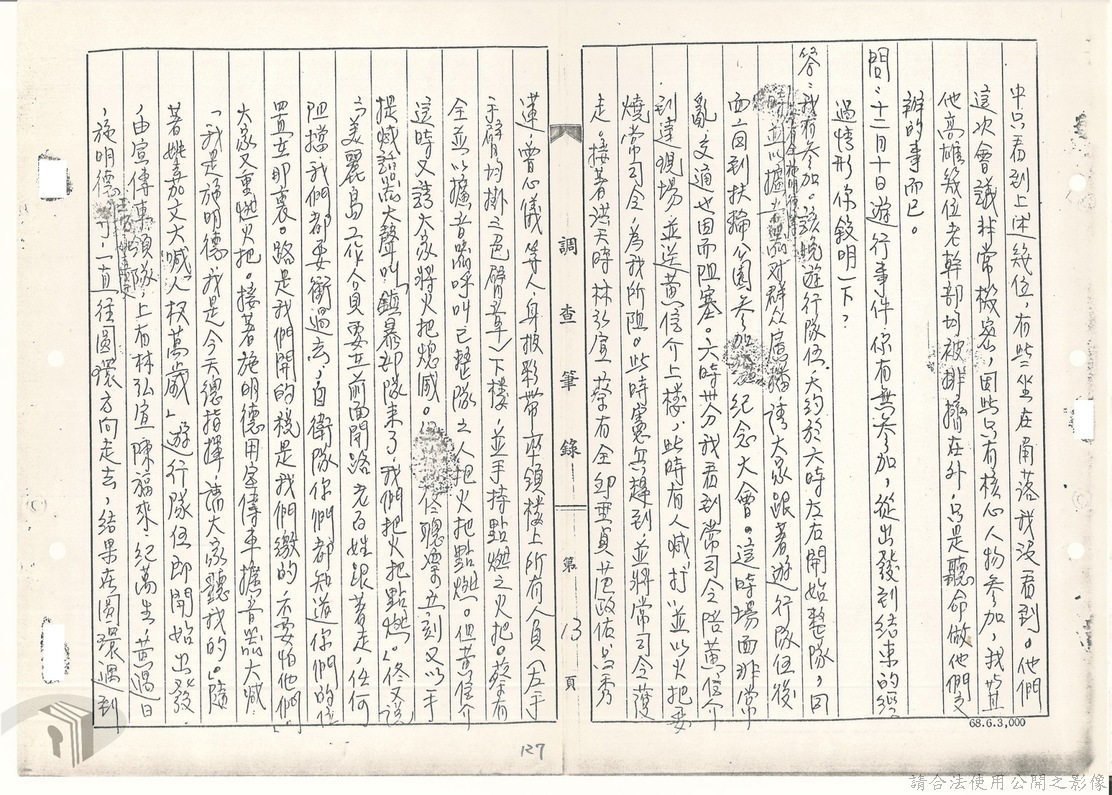 中只看到上述幾位,有些坐在角落我沒看到。他們
這次會議非常機密,因此只有核心人物參加,我與其
他高雄幾位老幹部均被排擠在外,只是聽命做他們交
辦的事而已。
問:十二月十日遊行事件,你有無參加,從出發到結束的經
過情形你敘明一下?
答:我有參加。該晚遊行隊伍大約於六時左右開始整隊,同
時並以擴音器對群眾煽惑,請大家跟著遊行隊伍後
面回到扶輪公園參加紀念大會。這時場面非常
亂,交通也因而阻塞。六時卅分我看到常司令陪黃信介
到達現場,並送黃信介上樓,此時有人喊「打」並以火把要
燒常司令,為我所阻。此時憲兵趕到,並將常司令護
走。接著洪天時、林弘宣、蔡有全、邱垂貞、范政佑、吳秀
調查筆錄 第 13 頁
蓮、曾心儀等人身披彩帶率領樓上所有人員(左手
手臂均掛三色臂章)下樓,並手持點燃之火把。蔡有
全並以擴音器呼叫已整隊之人把火把點燃。但黃信介
這時又請大家將火把熄滅。佟聽畢立刻又以手
提喊話器大聲叫「鎮暴部隊來了,我們把火把點燃」。佟又說
「美麗島工作人員要在前面開路,老百姓跟著走,任何
阻擋我們都要衝過去,自衛隊你們都知道你們的位
置在那裏。路是我們開的,稅是我們繳的,不要怕他們」
大家又重燃火把。接著施明德用宣傳車擴音器大喊:
「我是施明德,我是今天總指揮,請大家聽我的。」隨
著姚嘉文大喊「人權萬歲」遊行隊伍即開始出發,
由宣傳車領隊,上有林弘宣、陳福來、紀萬生、黃過日
、施明德一直往圓環方向走去,結果在圓環遇到
68.6.3,000
127
請合法使用公開之影像